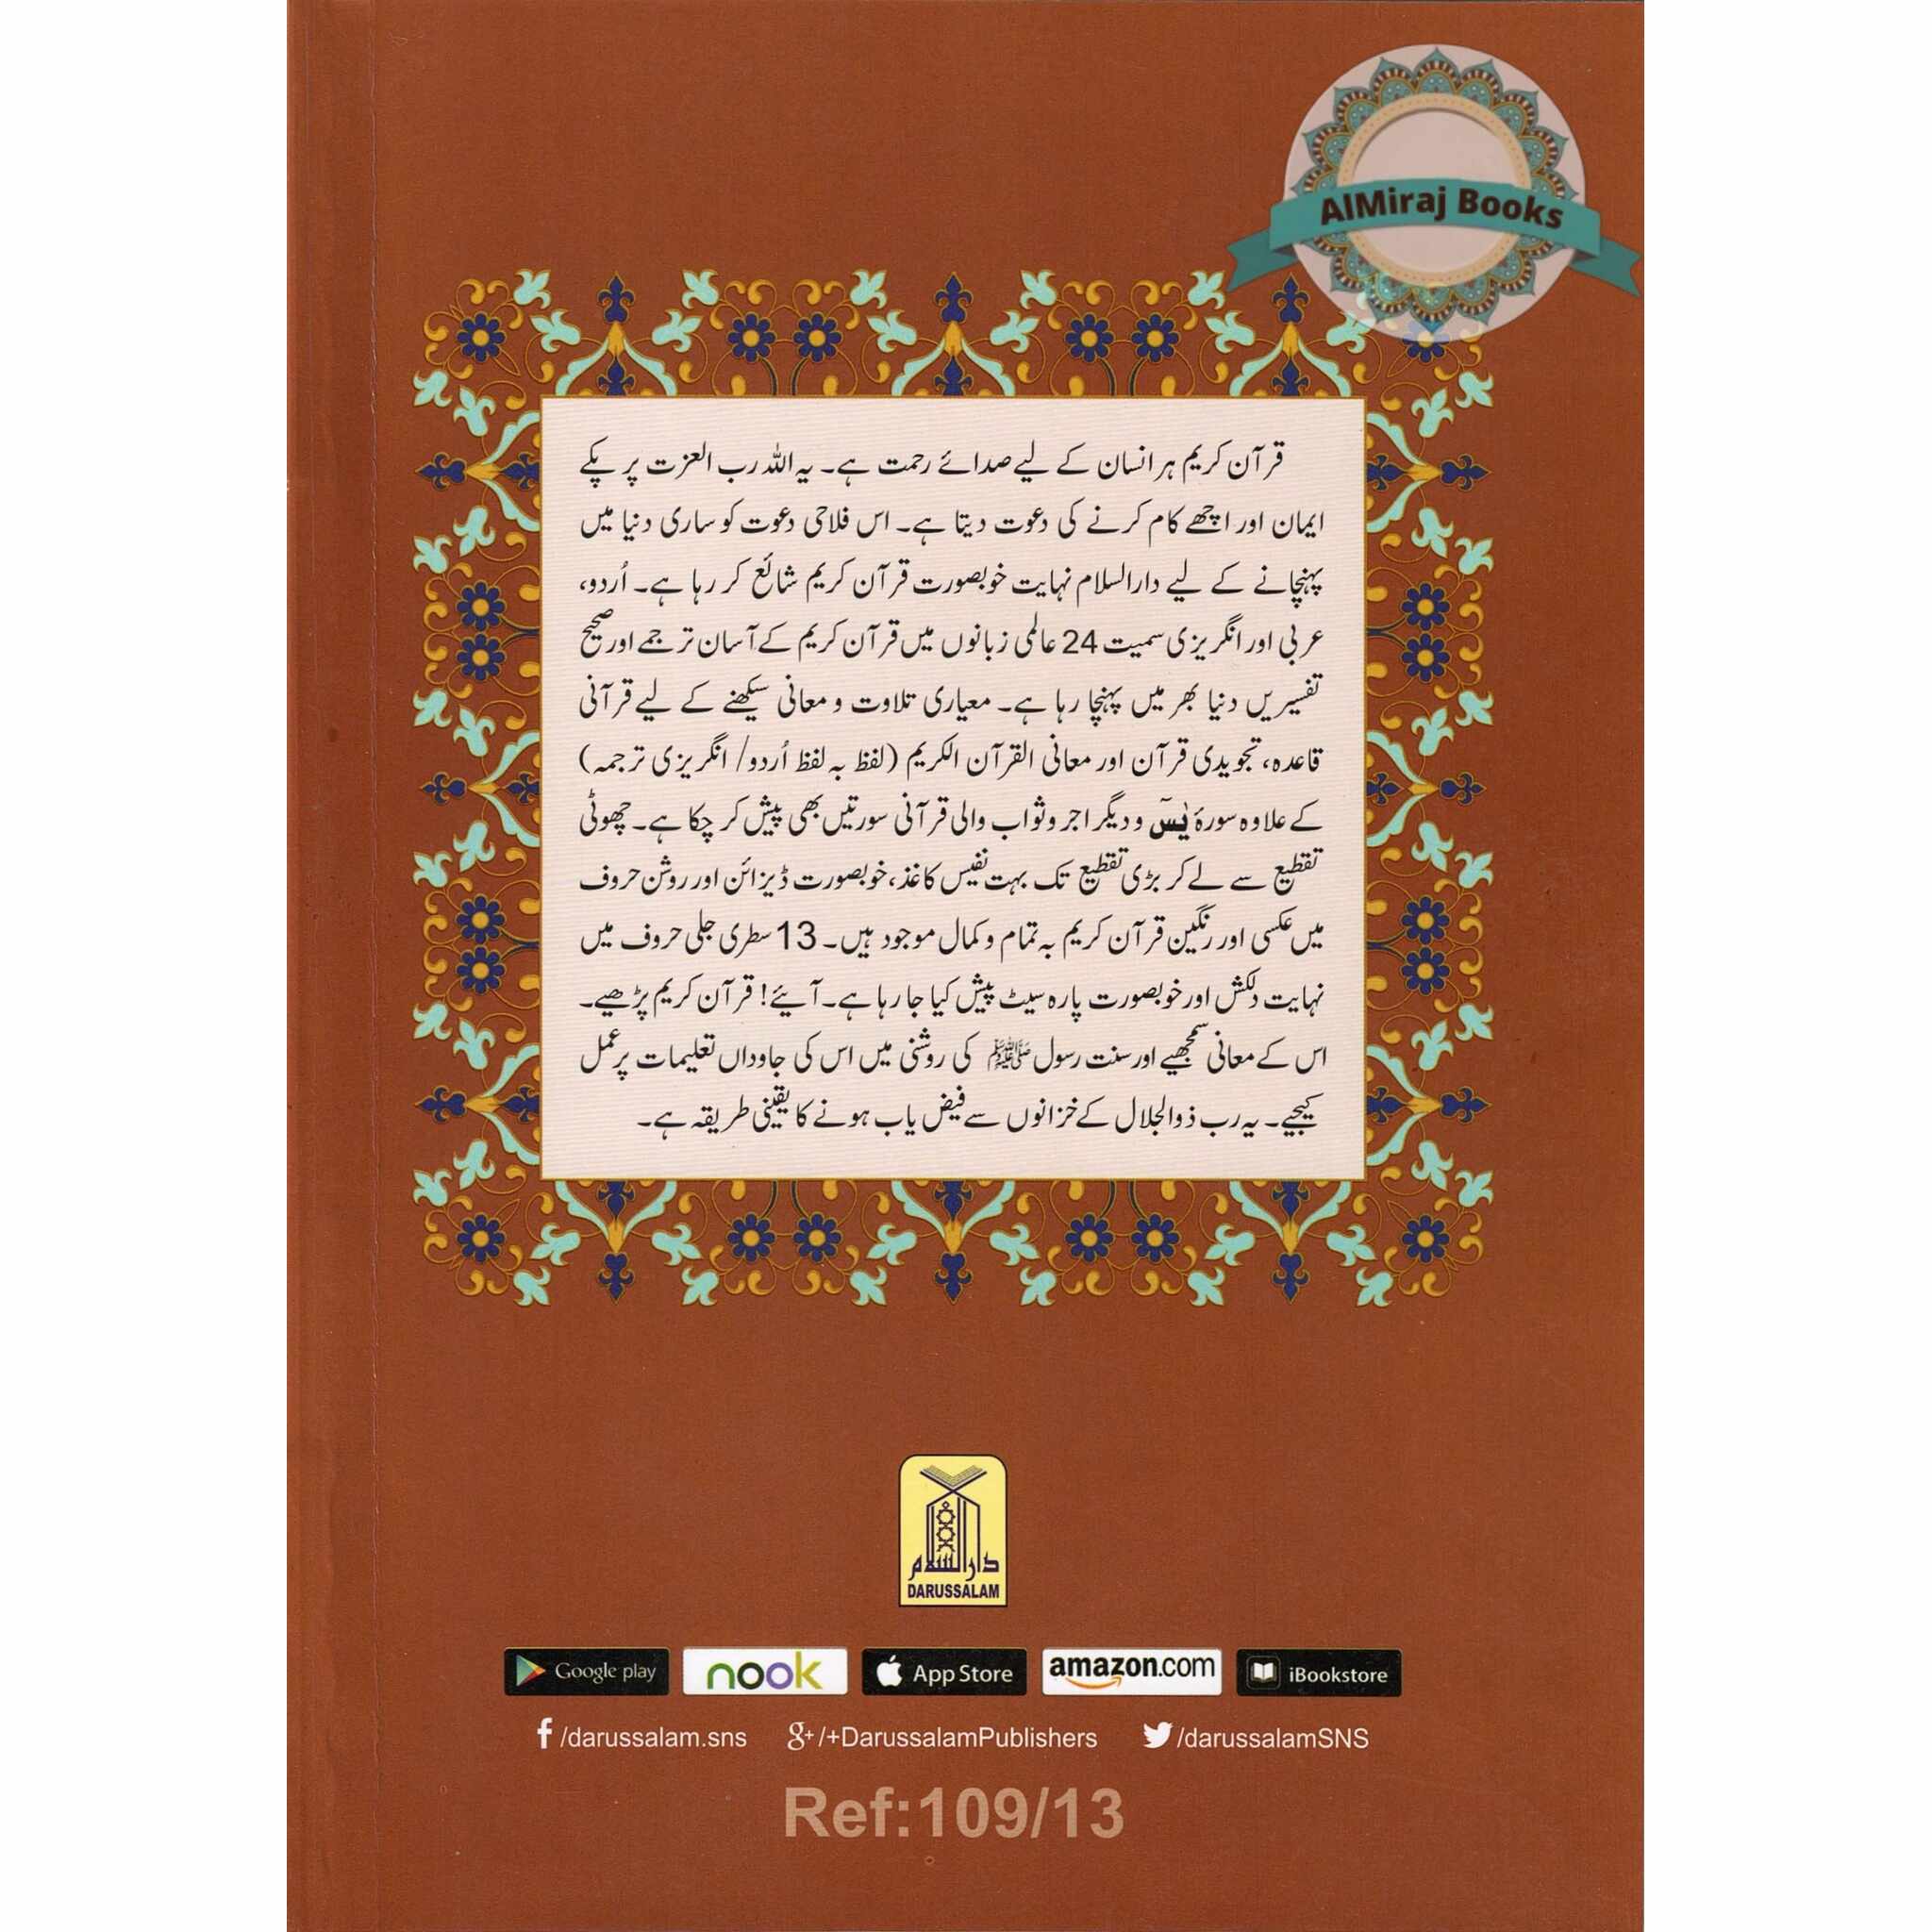 AlMiraj Books
قرآن کریم ہر انسان کے لیے صدائے رحمت ہے۔ یہ اللہ رب العزت پر پکے
ایمان اور اچھے کام کرنے کی دعوت دیتا ہے۔ اس فلاحی دعوت کو ساری دنیا میں
پہنچانے کے لیے دارالسلام نہایت خوبصورت قرآن کریم شائع کر رہا ہے۔ اُردو،
عربی اور انگریزی سمیت 24 عالمی زبانوں میں قرآن کریم کے آسان ترجمے اور صحیح
تفسیریں دنیا بھر میں پہنچا رہا ہے۔ معیاری تلاوت و معانی سیکھنے کے لیے قرآنی
قاعدہ، تجویدی قرآن اور معانی القرآن الکریم (لفظ بہ لفظ اُردو/ انگریزی ترجمہ)
کے علاوہ سورۂ یٰسٓ و دیگر اجر و ثواب والی قرآنی سورتیں بھی پیش کر چکا ہے۔ چھوٹی
تقطیع سے لے کر بڑی تقطیع تک بہت نفیس کاغذ، خوبصورت ڈیزائن اور روشن حروف
میں عکسی اور رنگین قرآن کریم بہ تمام و کمال موجود ہیں۔ 13 سطری جلی حروف میں
نہایت دلکش اور خوبصورت پارہ سیٹ پیش کیا جا رہا ہے۔ آیئے! قرآن کریم پڑھیے۔
اس کے معانی سمجھیے اور سنت رسول ﷺ کی روشنی میں اس کی جاوداں تعلیمات پر عمل
کیجیے۔ یہ رب ذوالجلال کے خزانوں سے فیض یاب ہونے کا یقینی طریقہ ہے۔
دارالسلام
DARUSSALAM
Google play nook App Store amazon.com iBookstore
f /darussalam.sns g+ /+DarussalamPublishers /darussalamSNS
Ref:109/13